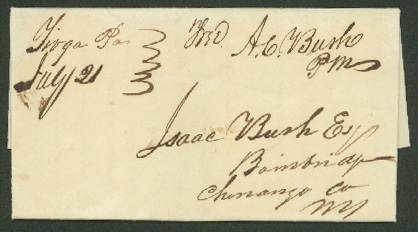 Tioga Pa
July 21
Fred. A.C. Bush
PM
Isaac Bush Esq
Bainbridge
Chenango Co
NY